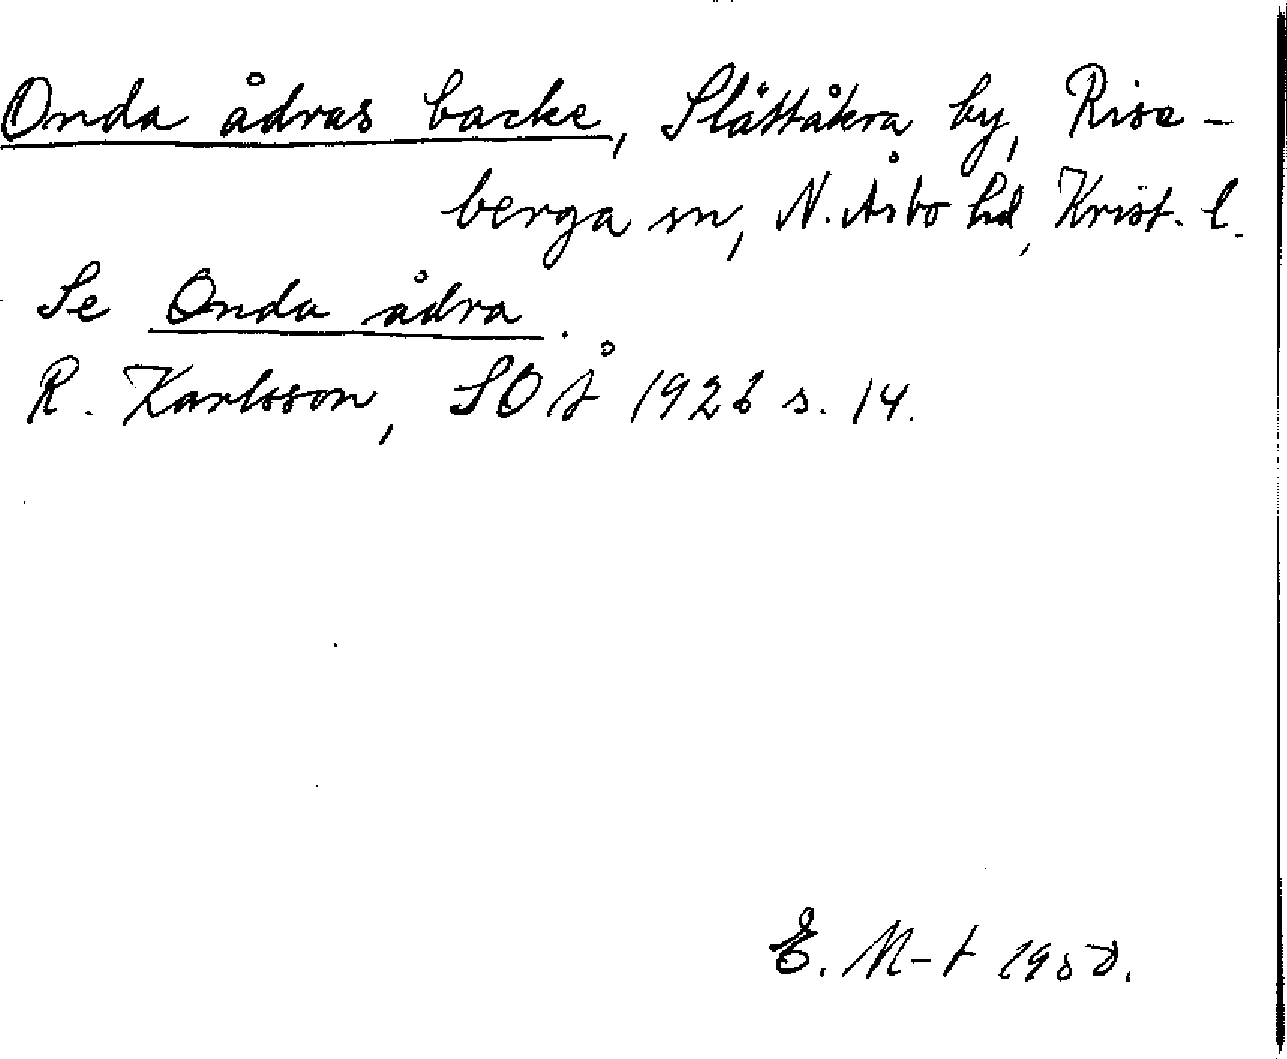 Onda ådras backe, Slättåkra by, Rise-
berga sn, N. Åsbo hd, Krist. l.
Se Onda ådra.
R. Karlsson, SOÅ 1926 s. 14.
E. M-t